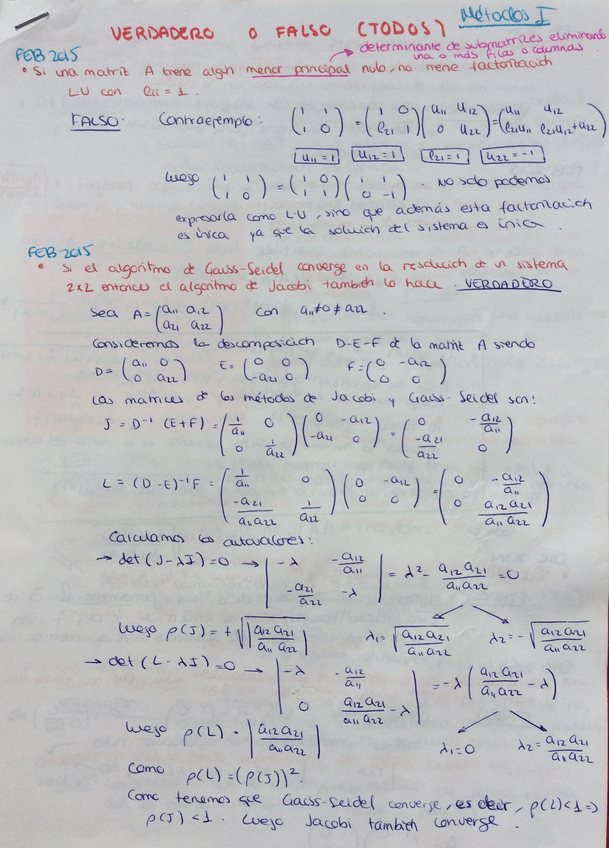 Métodos I
VERDADERO O FALSO (TODOS)
→ determinante de submatrizes eliminando
una o más filas o columnas
FEB 2015
• Si una matriz A tiene algún menor principal nulo, no tiene factorización
LU con lii = 1.
FALSO. Contraejemplo: (1 1; 1 0) = (1 0; l21 1)(u11 u12; 0 u22) = (u11 u12; l21u11 l21u12+u22)
u11 = 1 u12 = 1 l21 = 1 u22 = -1
luego (1 1; 1 0) = (1 0; 1 1)(1 1; 0 -1). No solo podemos
expresarla como LU, sino que además esta factorización
es única ya que la solución del sistema es única.
FEB 2015
• Si el algoritmo de Gauss-Seidel converge en la resolución de un sistema
2x2 entonces el algoritmo de Jacobi también lo hace. VERDADERO
Sea A = (a11 a12; a21 a22) con a11 ≠ 0 ≠ a22.
Consideremos la descomposición D-E-F de la matriz A siendo
D = (a11 0; 0 a22) E = (0 0; -a21 0) F = (0 -a12; 0 0)
Las matrices de los métodos de Jacobi y Gauss-Seidel son:
J = D⁻¹ (E+F) = (1/a11 0; 0 1/a22)(0 -a12; -a21 0) = (0 -a12/a11; -a21/a22 0)
L = (D-E)⁻¹F = (1/a11 0; -a21/a11a22 1/a22)(0 -a12; 0 0) = (0 -a12/a11; 0 a12a21/a11a22)
Calculamos los autovalores:
→ det(J-λI)=0 → |-λ -a12/a11; -a21/a22 -λ| = λ² - a12a21/a11a22 = 0
luego ρ(J) = +√|a12a21/a11a22| λ1 = √(a12a21/a11a22) λ2 = -√(a12a21/a11a22)
→ det(L-λI)=0 → |-λ -a12/a11; 0 a12a21/a11a22 -λ| = -λ(a12a21/a11a22 - λ)
luego ρ(L) = |a12a21/a11a22| λ1=0 λ2 = a12a21/a11a22
Como ρ(L)=(ρ(J))².
Como tenemos que Gauss-Seidel converge, es decir, ρ(L)<1 =>
ρ(J)<1. Luego Jacobi también converge.